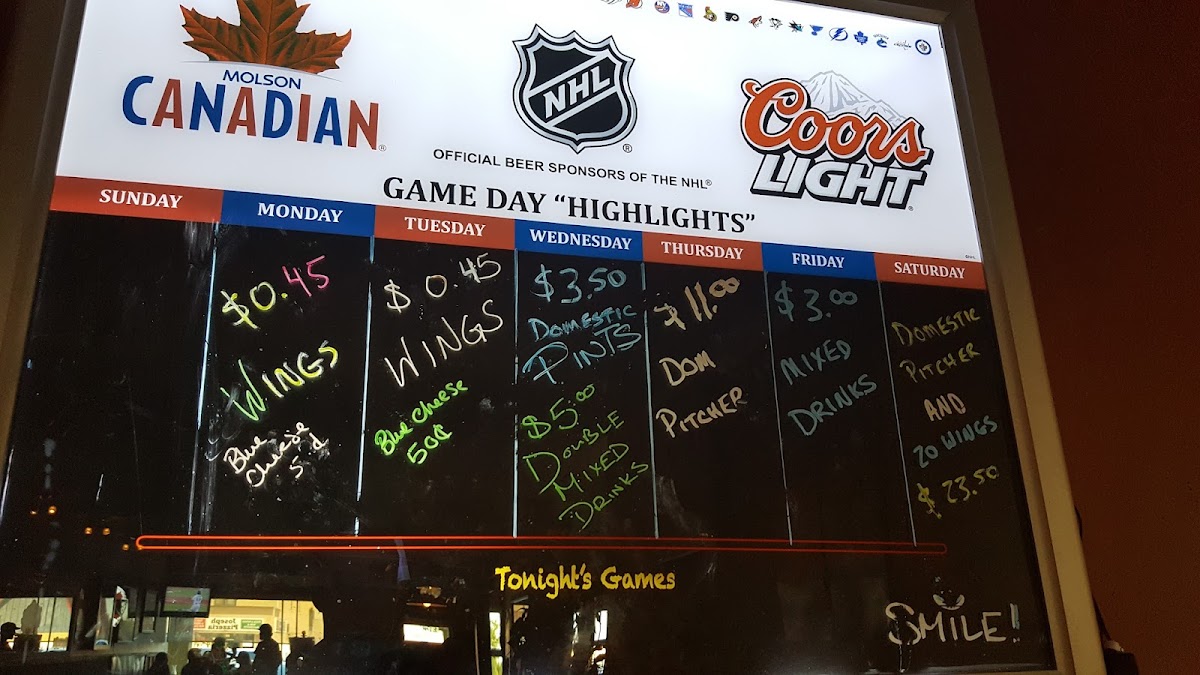 MOLSON
CANADIAN
NHL
OFFICIAL BEER SPONSORS OF THE NHL®
Coors
LIGHT
GAME DAY “HIGHLIGHTS”
SUNDAY
MONDAY
$0.45
WINGS
Blue
Cheese
TUESDAY
$0.45
WINGS
Blue Cheese
50¢
WEDNESDAY
$3.50
DOMESTIC
PINTS
$5.00
DOUBLE
MIXED
DRINKS
THURSDAY
$11.00
DOM
PITCHER
FRIDAY
$3.00
MIXED
DRINKS
SATURDAY
DOMESTIC
PITCHER
AND
20 WINGS
$23.50
Tonight's Games
SMILE!
Joseph
Pizzeria